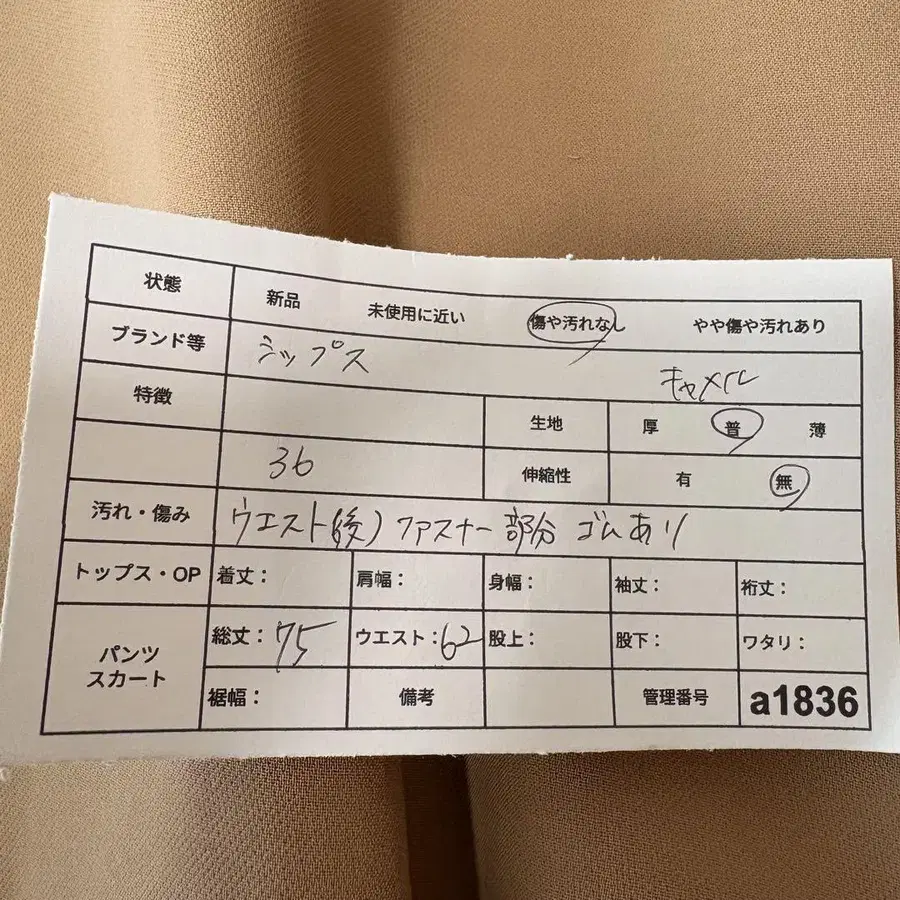 状態 新品 未使用に近い 傷や汚れなし やや傷や汚れあり
ブランド等 シップス キャメル
特徴 生地 厚 普 薄
36 伸縮性 有 無
汚れ・傷み ウエスト(後)ファスナー部分 ゴムあり
トップス・OP 着丈: 肩幅: 身幅: 袖丈: 裄丈:
パンツ スカート 総丈:75 ウエスト:62 股上: 股下: ワタリ:
裾幅: 備考 管理番号 a1836